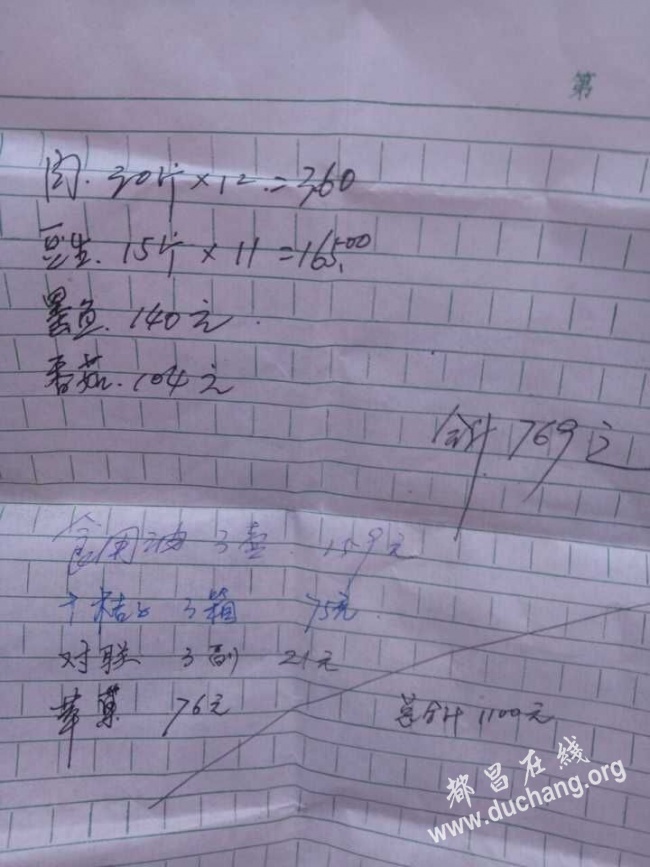 第
肉.30斤×12=360
豆生.15斤×11=165.00
墨鱼.140元.
香菇.104元
合计769元
食用油 3壶. 159元
桔 3箱 75元
对联 3副 21元
苹菓 76元
总合计1100元
都昌在线
www.duchang.org